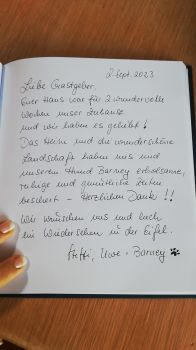 2. Sept. 2023
Liebe Gastgeber,
Euer Haus war für 2 wundervolle
Wochen unser Zuhause
und wir haben es geliebt!
Das Heim und die wunderschöne
Landschaft haben uns und
unserem Hund Barney erholsame,
ruhige und gemütliche Zeiten
beschert - Herzlichen Dank!!
Wir wünschen uns und Euch
ein Wiedersehen in der Eifel.
Steffi, Uwe + Barney